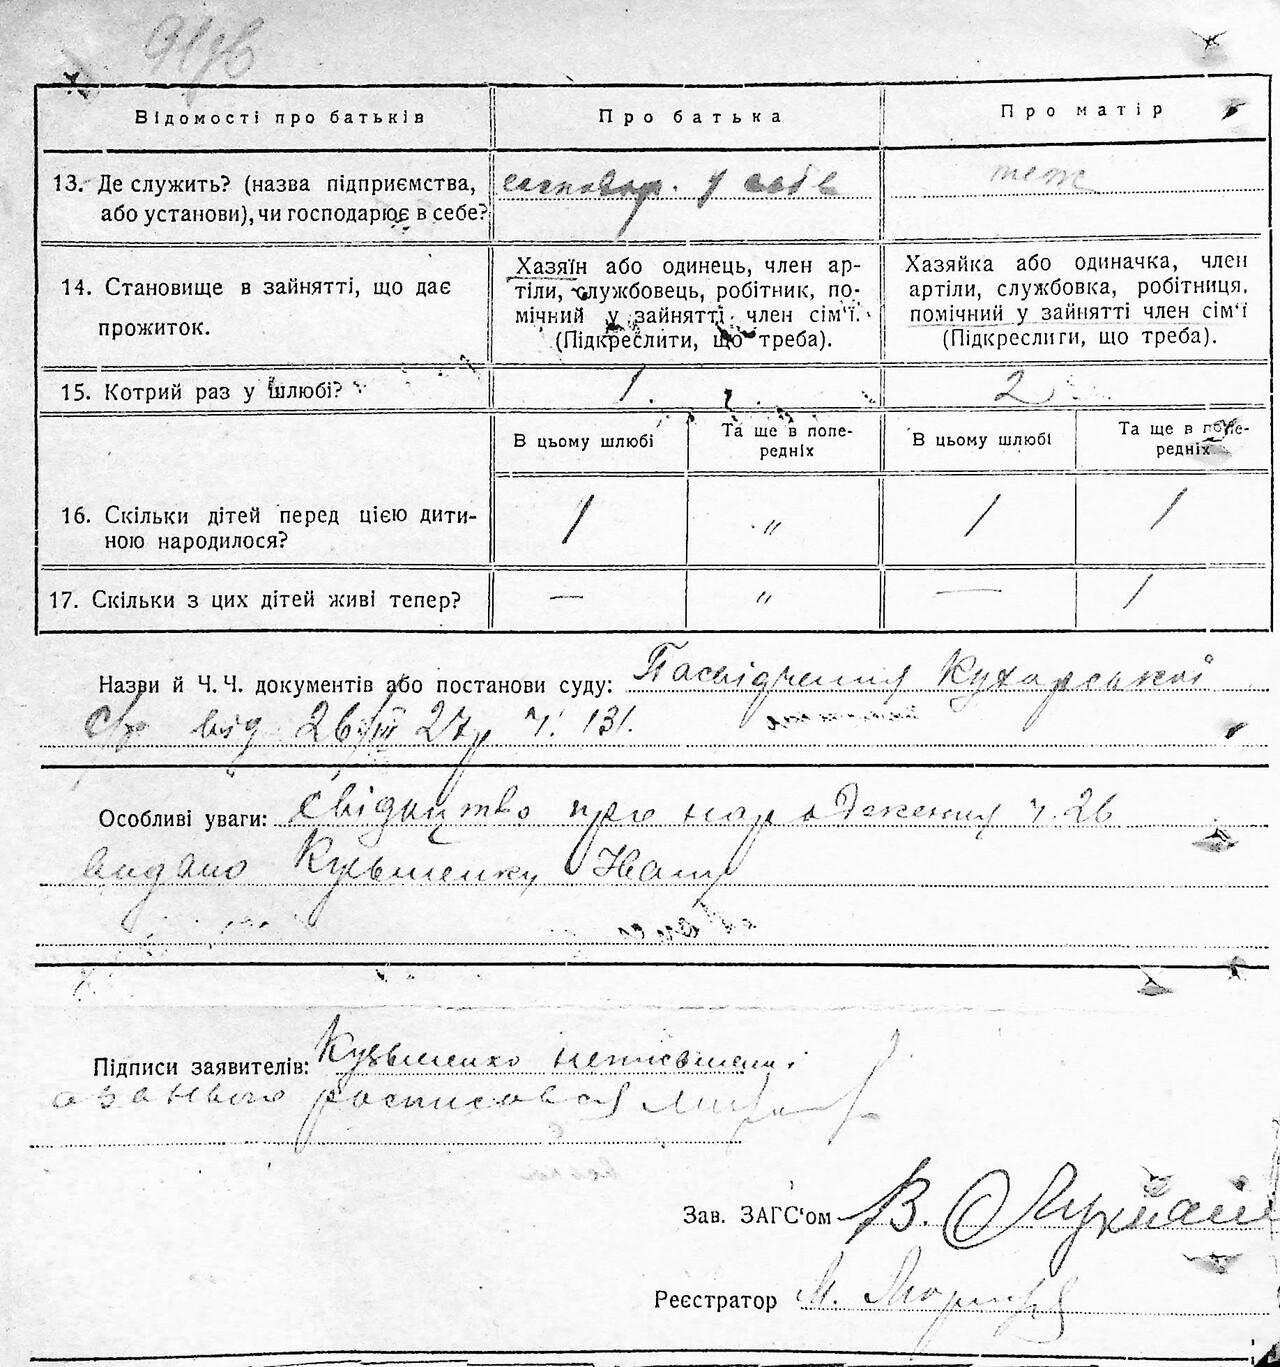 Відомості про батьків
Про батька
Про матір
13. Де служить? (назва підприємства,
або установи), чи господарює в себе?
господар. у себе
теж
14. Становище в зайнятті, що дає
прожиток.
Хазяїн або одинець, член ар-
тіли, службовець, робітник, по-
мічний у зайнятті член сім'ї.
(Підкреслити, що треба).
Хазяйка або одиначка, член
артіли, службовка, робітниця,
помічний у зайнятті член сім'ї
(Підкреслити, що треба).
15. Котрий раз у шлюбі?
1.
2
В цьому шлюбі
Та ще в попе-
редніх
В цьому шлюбі
Та ще в попе-
редніх
16. Скільки дітей перед цією дити-
ною народилося?
1
"
1
1
17. Скільки з цих дітей живі тепер?
—
"
—
1
Назви й Ч. Ч. документів або постанови суду: Посвідчення Кухарської
с/р від 26/III 27р ч. 131.
Особливі уваги: Свідоцтво про народження ч. 26
видано Кузьменку Івану
Підписи заявителів: Кузьменко неписьмений
а за нього росписався
Зав. ЗАГС'ом В.
Реєстратор М.